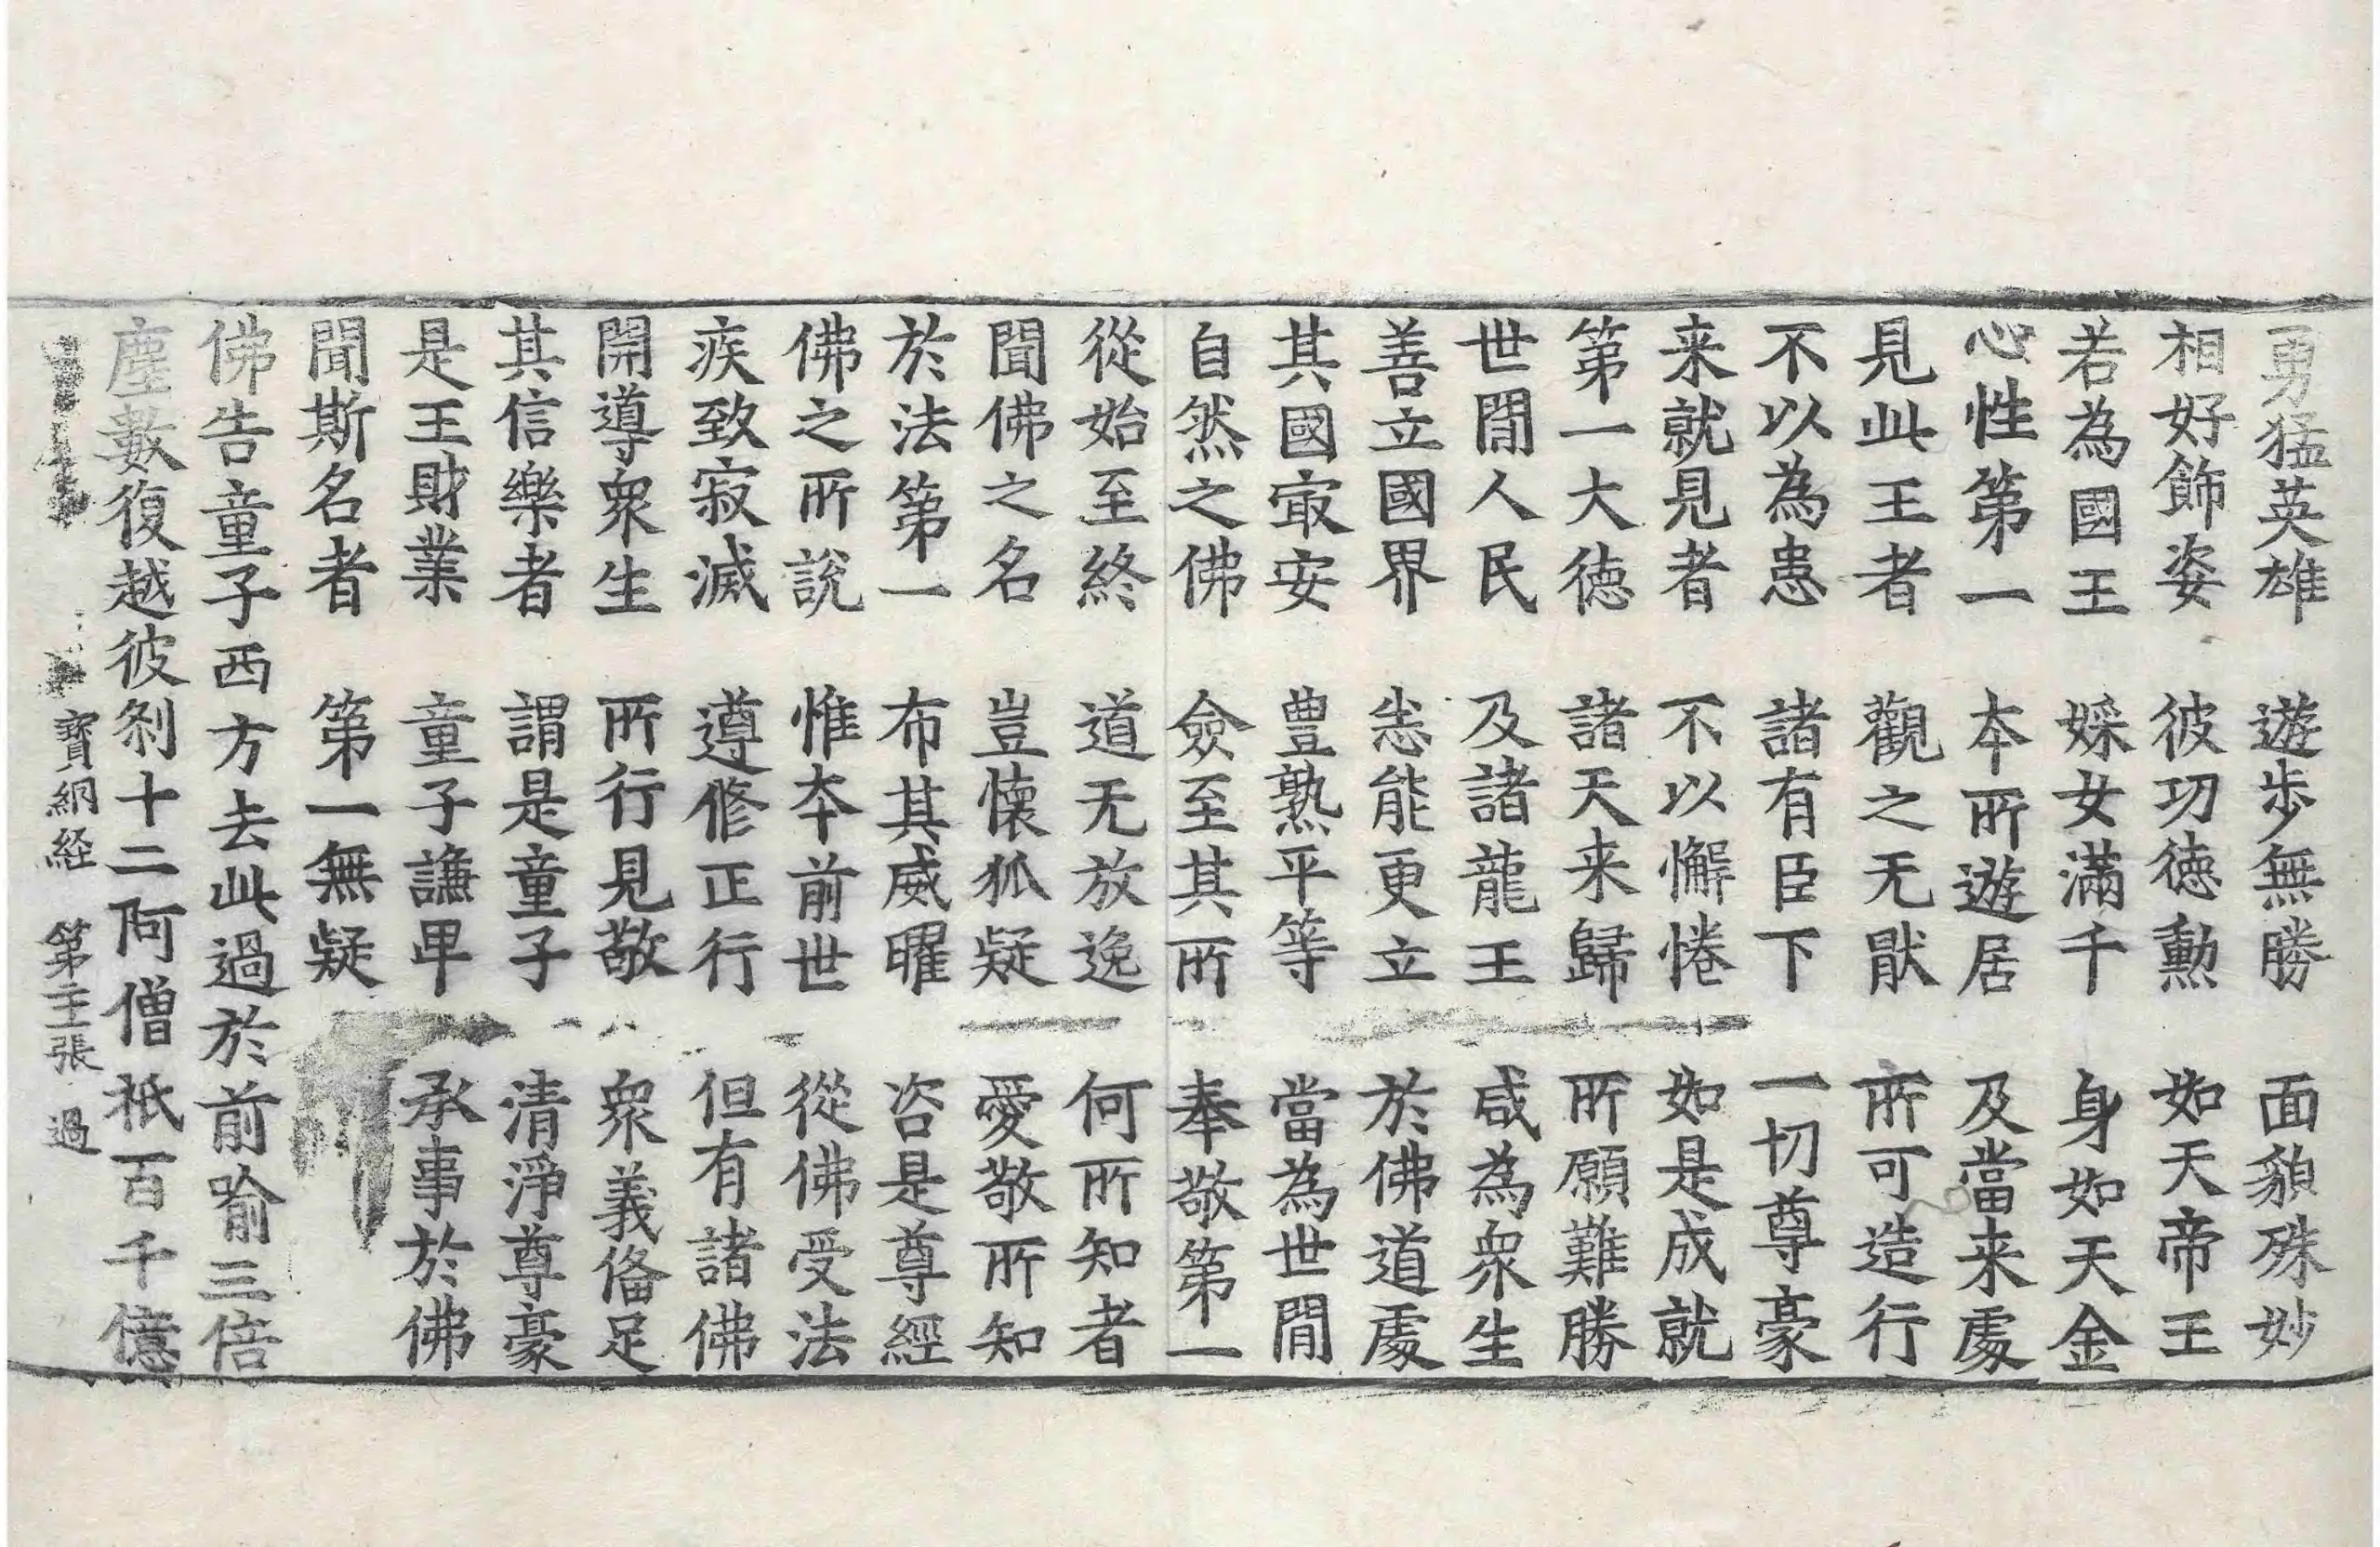 勇猛英雄　遊步無勝　面貌殊妙
相好飾姿　彼功德勲　如天帝王
若為國王　婇女滿千　身如天金
心性第一　本所遊居　及當来處
見此王者　觀之无猒　所可造行
不以為患　諸有臣下　一切尊豪
来就見者　不以懈惓　如是成就
第一大德　諸天来歸　所願難勝
世間人民　及諸龍王　咸為衆生
善立國界　恙能更立　於佛道處
其國㝡安　豊熟平等　當為世間
自然之佛　僉至其所　奉敬第一
從始至終　道无放逸　何所知者
聞佛之名　豈懷狐疑　愛敬所知
於法第一　布其威曜　咨是尊經
佛之所說　惟本前世　從佛受法
疾致寂滅　遵修正行　但有諸佛
開導衆生　所行見敬　衆義俻足
其信樂者　謂是童子　清淨尊豪
是王財業　童子謙卑　承事於佛
聞斯名者　第一無疑
佛告童子西方去此過於前喻三倍
塵數復越彼刹十二阿僧祇百千億
寶網経　第主張　過